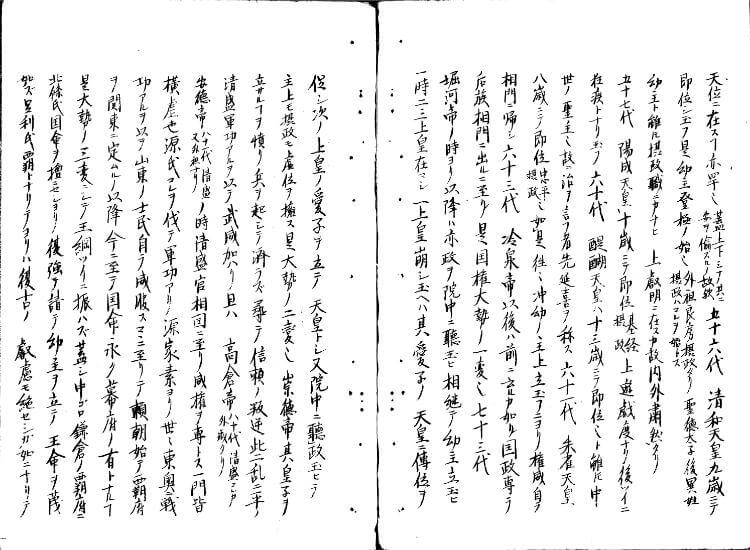 天位ニ在スヿ亦罕シ 蓋上下シテ其ニ安ヲ偸スルノ故歟 五十六代 清和天皇九歳ニテ
即位シ玉フ是幼主登極ノ始シ 外祖良房摂政タリ 聖徳太子後異姓摂政ハコレヲ始トス
幼主ト雖ㇳモ摂政職ニカナヒ 上叡明ニ在スカ故内外肅然タリ
五十七代 陽成天皇十歳ニテ即位 基経摂政 上遊戯度ナリ後ツイニ
在廃トナリ玉フ 六十代 醍醐天皇ハ十三歳ニテ即位シト雖ㇳモ中
世ノ聖主シ故ニ治ヲ言フ者先延喜ヲ称ス 六十一代 朱雀天皇
八歳ニテ即位 忠平摂政 如是往々冲幼ノ主上立玉フニヨリ権威自ラ
相門ニ帰シ 六十三代 冷泉帝以後ハ前ニ云ル如ク国政専ラ
后族相門ニ出ルニ至ル是国権大勢ノ一変シ 七十三代
堀河帝ノ時ヨリ以降ハ亦政ヲ院中ニ聽玉ヒ相継テ幼主立玉ヒ
一時ニ三上皇在シ 一上皇崩シ玉ヘハ其愛子ノ天皇ニ傳位ヲ
促シ次ノ上皇ノ愛子ヲ立テ 天皇トシ又院中ニ聽政玉ヒテ
主上モ摂政モ虚位ヲ擁ス是大勢ノ二変シ 崇徳帝其皇子ヲ
立サルヲ憤リ兵ヲ起シテ済ラス尋テノ信頼ノ叛逆此二乱ニ平
清盛軍功アルヲ以テ武威加ハリ且ハ 高倉帝 八十代清盛ニカ外戚タリ
安徳帝 八十一代清盛 ノ時清盛官相国ニ至リ威権ヲ専トス一門皆
横虐也源氏コレヲ伐テ軍功アリ源家素ヨリ世々東奥ニ戦
功アルヲ以テ山東ノ士民自ラ威服スコヽニ至リテ頼朝始テ覇府
ヲ関東ニ定ムルノ以降今ニ至テ国命永ク幕府ノ有トナルヿ
是大勢ノ三変ニシテ王綱ツイニ振ハズ蓋シ中ゴロ鎌倉ノ覇府ニ
北條氏国命ヲ擅ニセシヨリノ後強テ請テ幼主ヲ立テ王命ヲ蔑
如ス足利氏覇トナリテヨリハ復古ノ 叡慮モ絶セシガ如ニナリシテ